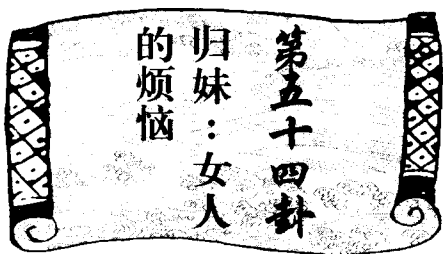 第五十四卦
归妹：女人
的烦恼